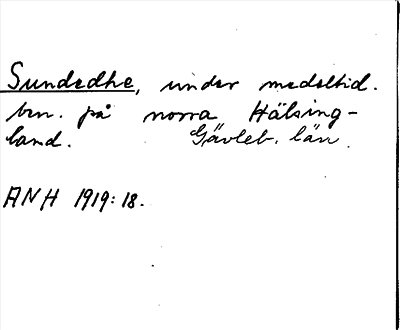 Sundedhe, under medeltid.
ben. på norra Hälsing-
land. Gävleb. län.
ANH 1919:18.